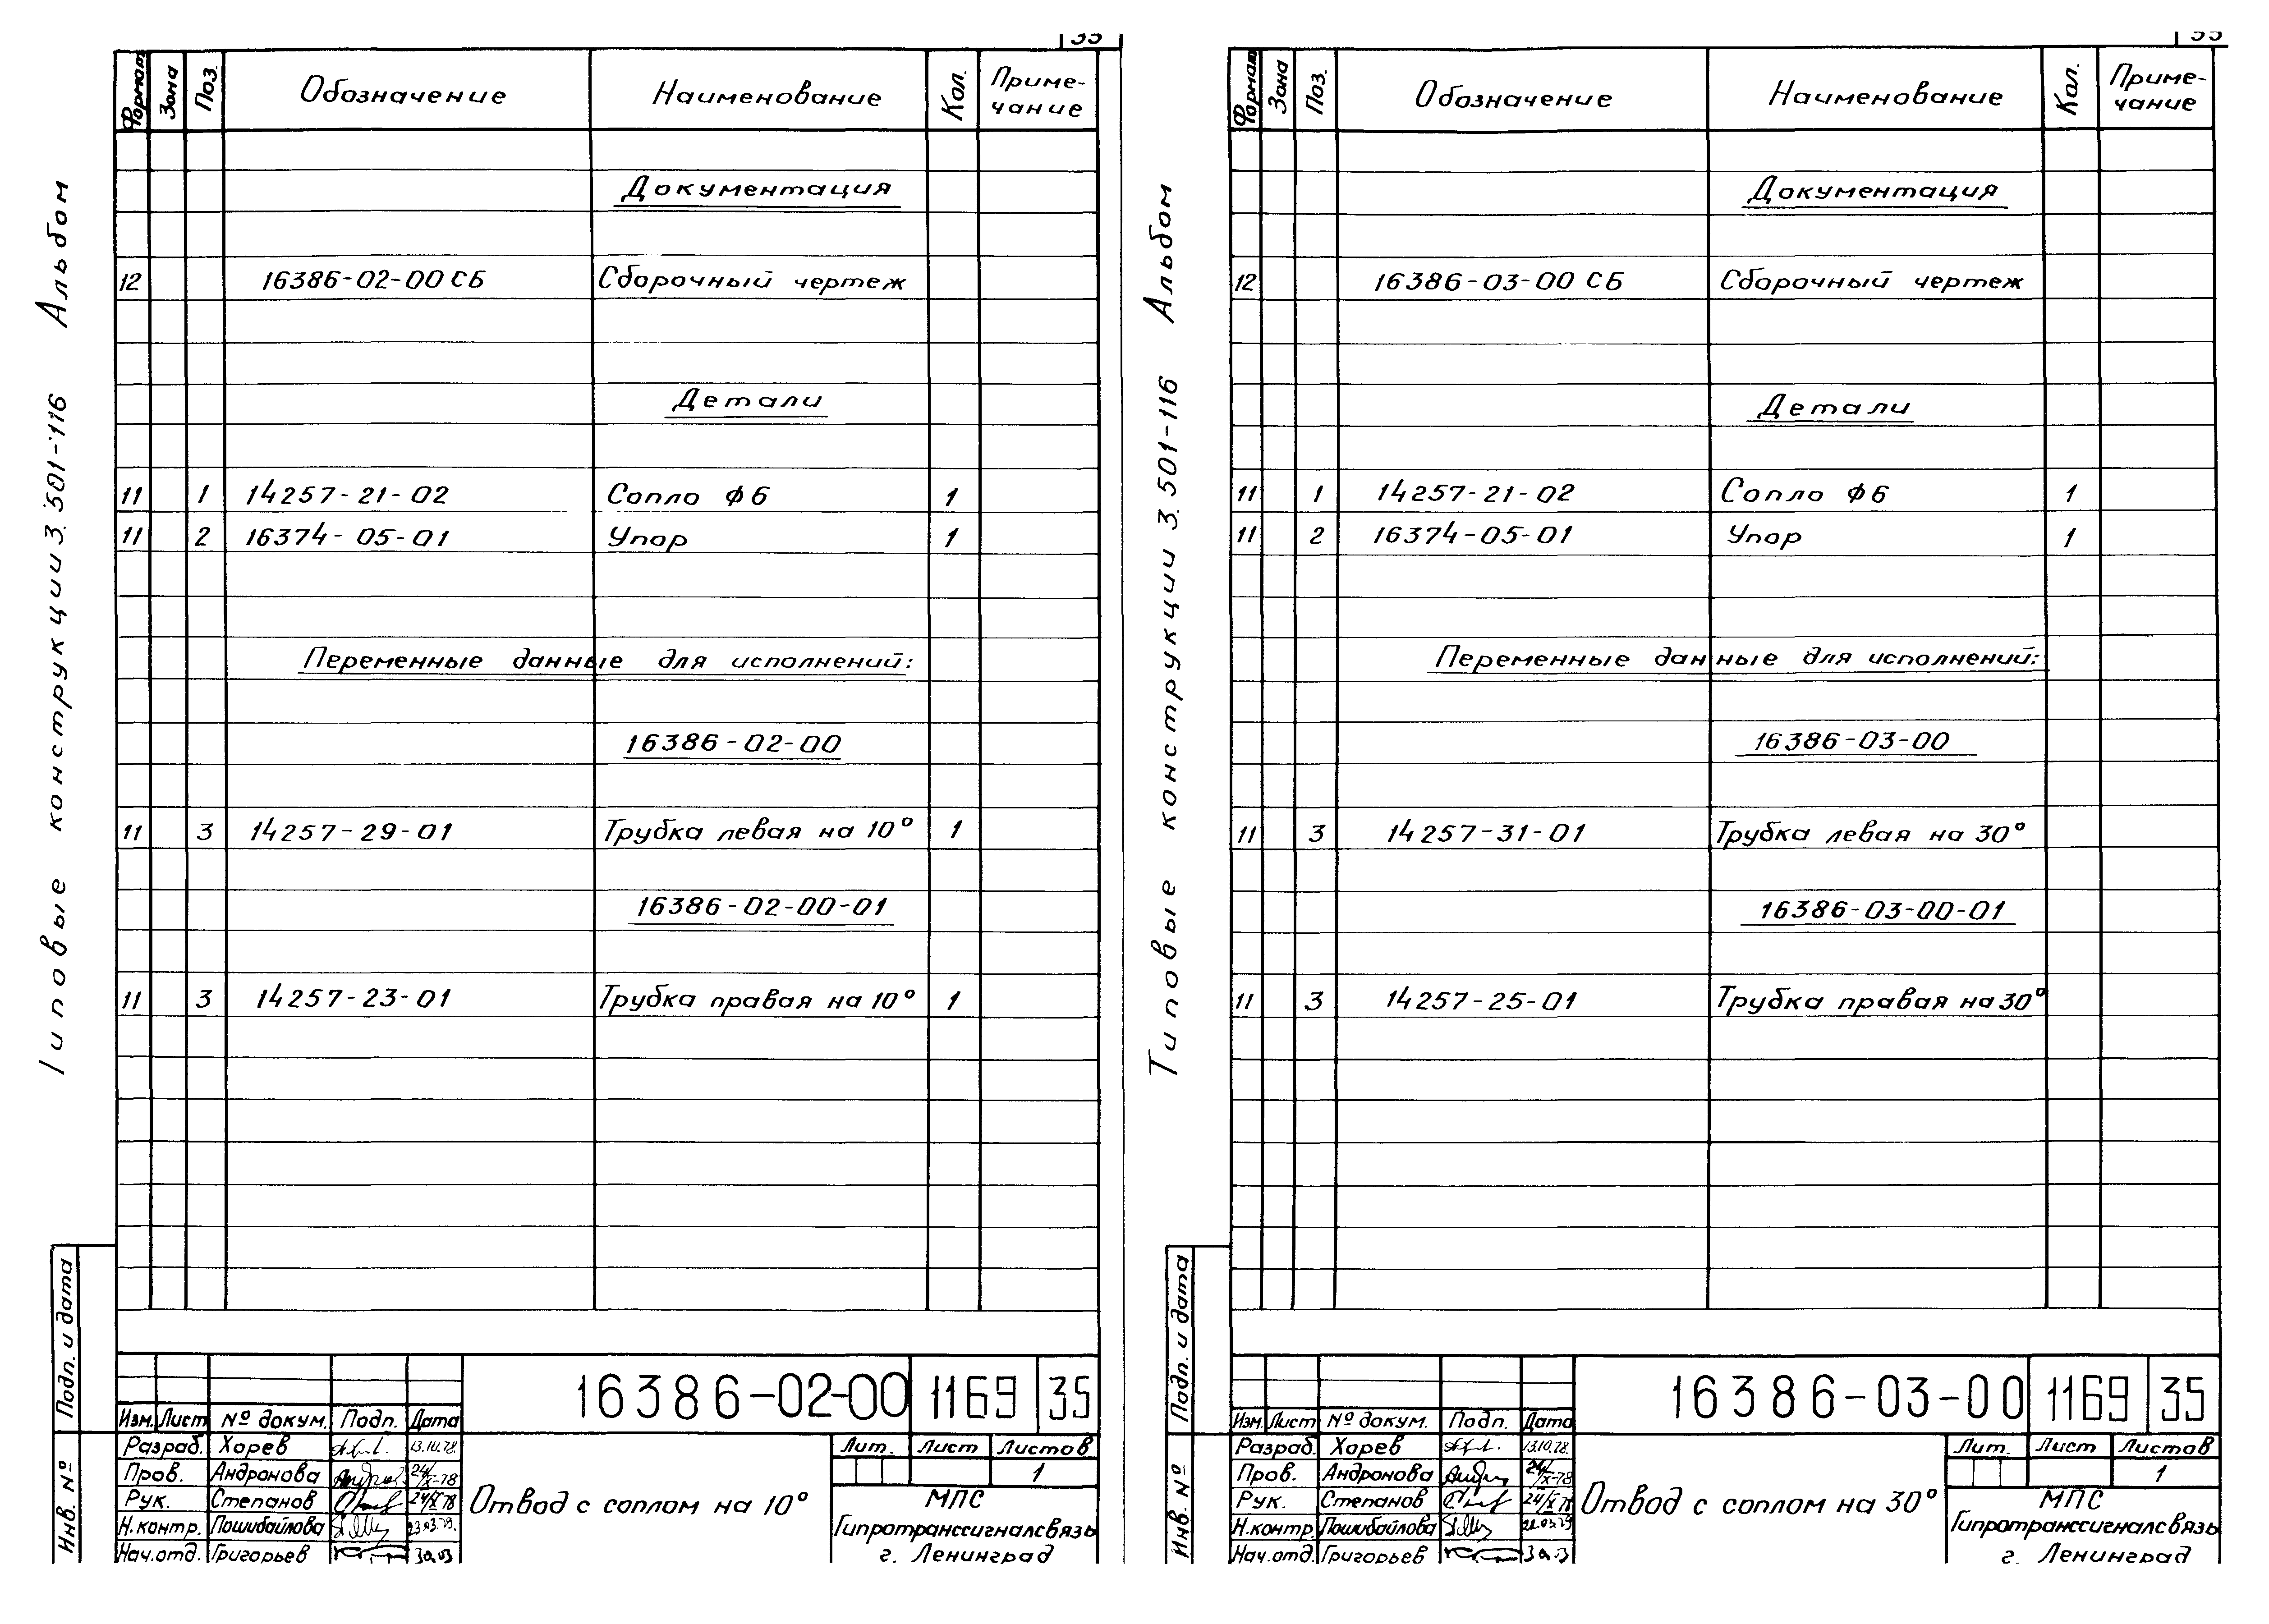 35
Формат Зона Поз. Обозначение Наименование Кол. Приме-
чание
Документация
12 16386-02-00 СБ Сборочный чертеж
Детали
11 1 14257-21-02 Сопло ϕ6 1
11 2 16374-05-01 Упор 1
Переменные данные для исполнений:
16386-02-00
11 3 14257-29-01 Трубка левая на 10° 1
16386-02-00-01
11 3 14257-23-01 Трубка правая на 10° 1
Типовые конструкции 3.501-116 Альбом
Подп. и дата
Инв. №
16386-02-00 1169 35
Изм. Лист № докум. Подп. Дата
Разраб. Хорев 13.10.78.
Пров. Андронова 24/IX-78
Рук. Степанов 24/IX 78
Н.контр. Пошибайлова 23.03.79.
Нач.отд. Григорьев
Отвод с соплом на 10°
Лит. Лист Листов
1
МПС
Гипротранссигналсвязь
г. Ленинград
35
Формат Зона Поз. Обозначение Наименование Кол. Приме-
чание
Документация
12 16386-03-00 СБ Сборочный чертеж
Детали
11 1 14257-21-02 Сопло ϕ6 1
11 2 16374-05-01 Упор 1
Переменные данные для исполнений:
16386-03-00
11 3 14257-31-01 Трубка левая на 30°
16386-03-00-01
11 3 14257-25-01 Трубка правая на 30°
Типовые конструкции 3.501-116 Альбом
Подп. и дата
Инв. №
16386-03-00 1169 35
Изм. Лист № докум. Подп. Дата
Разраб. Хорев 13.10.78.
Пров. Андронова 24/IX-78
Рук. Степанов 24/IX 78
Н.контр. Пошибайлова
Нач.отд. Григорьев
Отвод с соплом на 30°
Лит. Лист Листов
1
МПС
Гипротранссигналсвязь
г. Ленинград